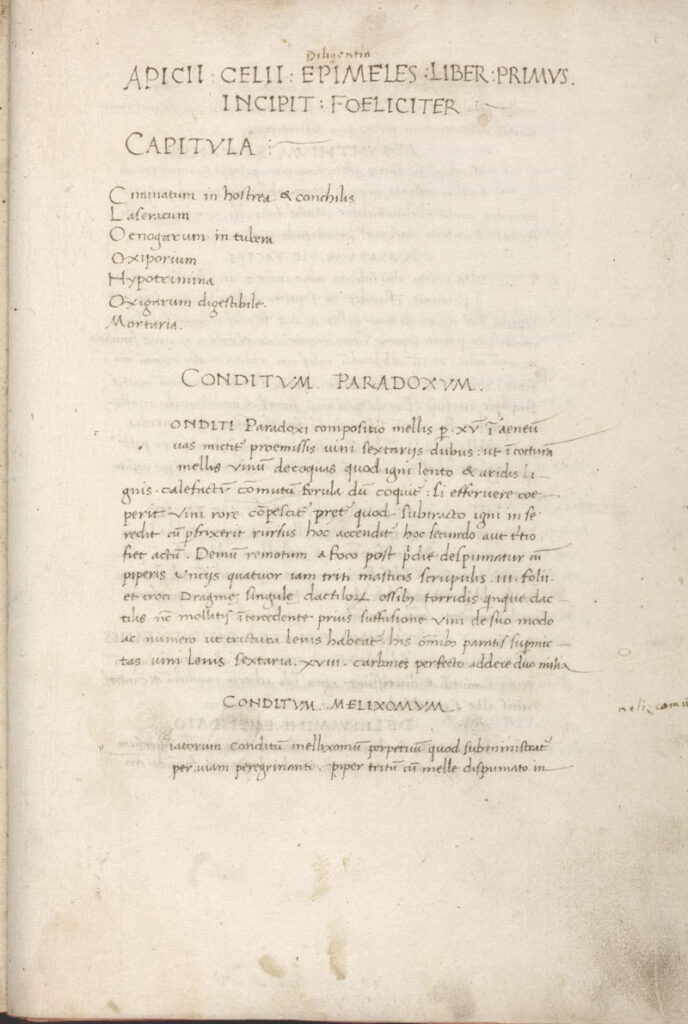 Diligentia
APICII : CELII : EPIMELES : LIBER : PRIMVS.
INCIPIT : FOELICITER :
CAPITVLA :
Ciminatum in hostrea & conchilis
Laseratum
Oenogarum in tubera
Oxiporium
Hypotrimina
Oxigarum digestibile.
Mortaria.
CONDITVM PARADOXVM.
ONDITI Paradoxi compositio mellis p. XV. ī aeneū
uas mictit᷑ proemissis uini sextarijs dubus: ut ī coctura
mellis uinū decoquas quod igni lento & aridis li
gnis. calefactū cōmutū ferula dū coquit᷑: si efferuere coe
perit uini rore cōpescit᷑ pret᷑ quod subtracto igni in se
redit cū pfrixerit rursus hoc accendit᷑ hoc secundo aut t̄tio
fiet actū. Demū remotum a foco post p̄die despumatur cū
piperis Uncijs quatuor iam triti masticis scrupulis. III. folii
et croci Dragme singule dactilorꝝ ossibꝫ torridis q̄nque dac
tilis mollitis ītercedente prius suffusione uini de suo modo
ac numero ut tritura lenis habeat᷑ his omībꝫ paratis supmic
tas uini lenis sextaria. XVIII. carbones perfecto addere duo milia
CONDITVM MELIXOMVM.
iatorum conditū mellixomū perpetuū quod subministrat᷑
per uiam peregrinanti. piper tritū cū melle dispumato in